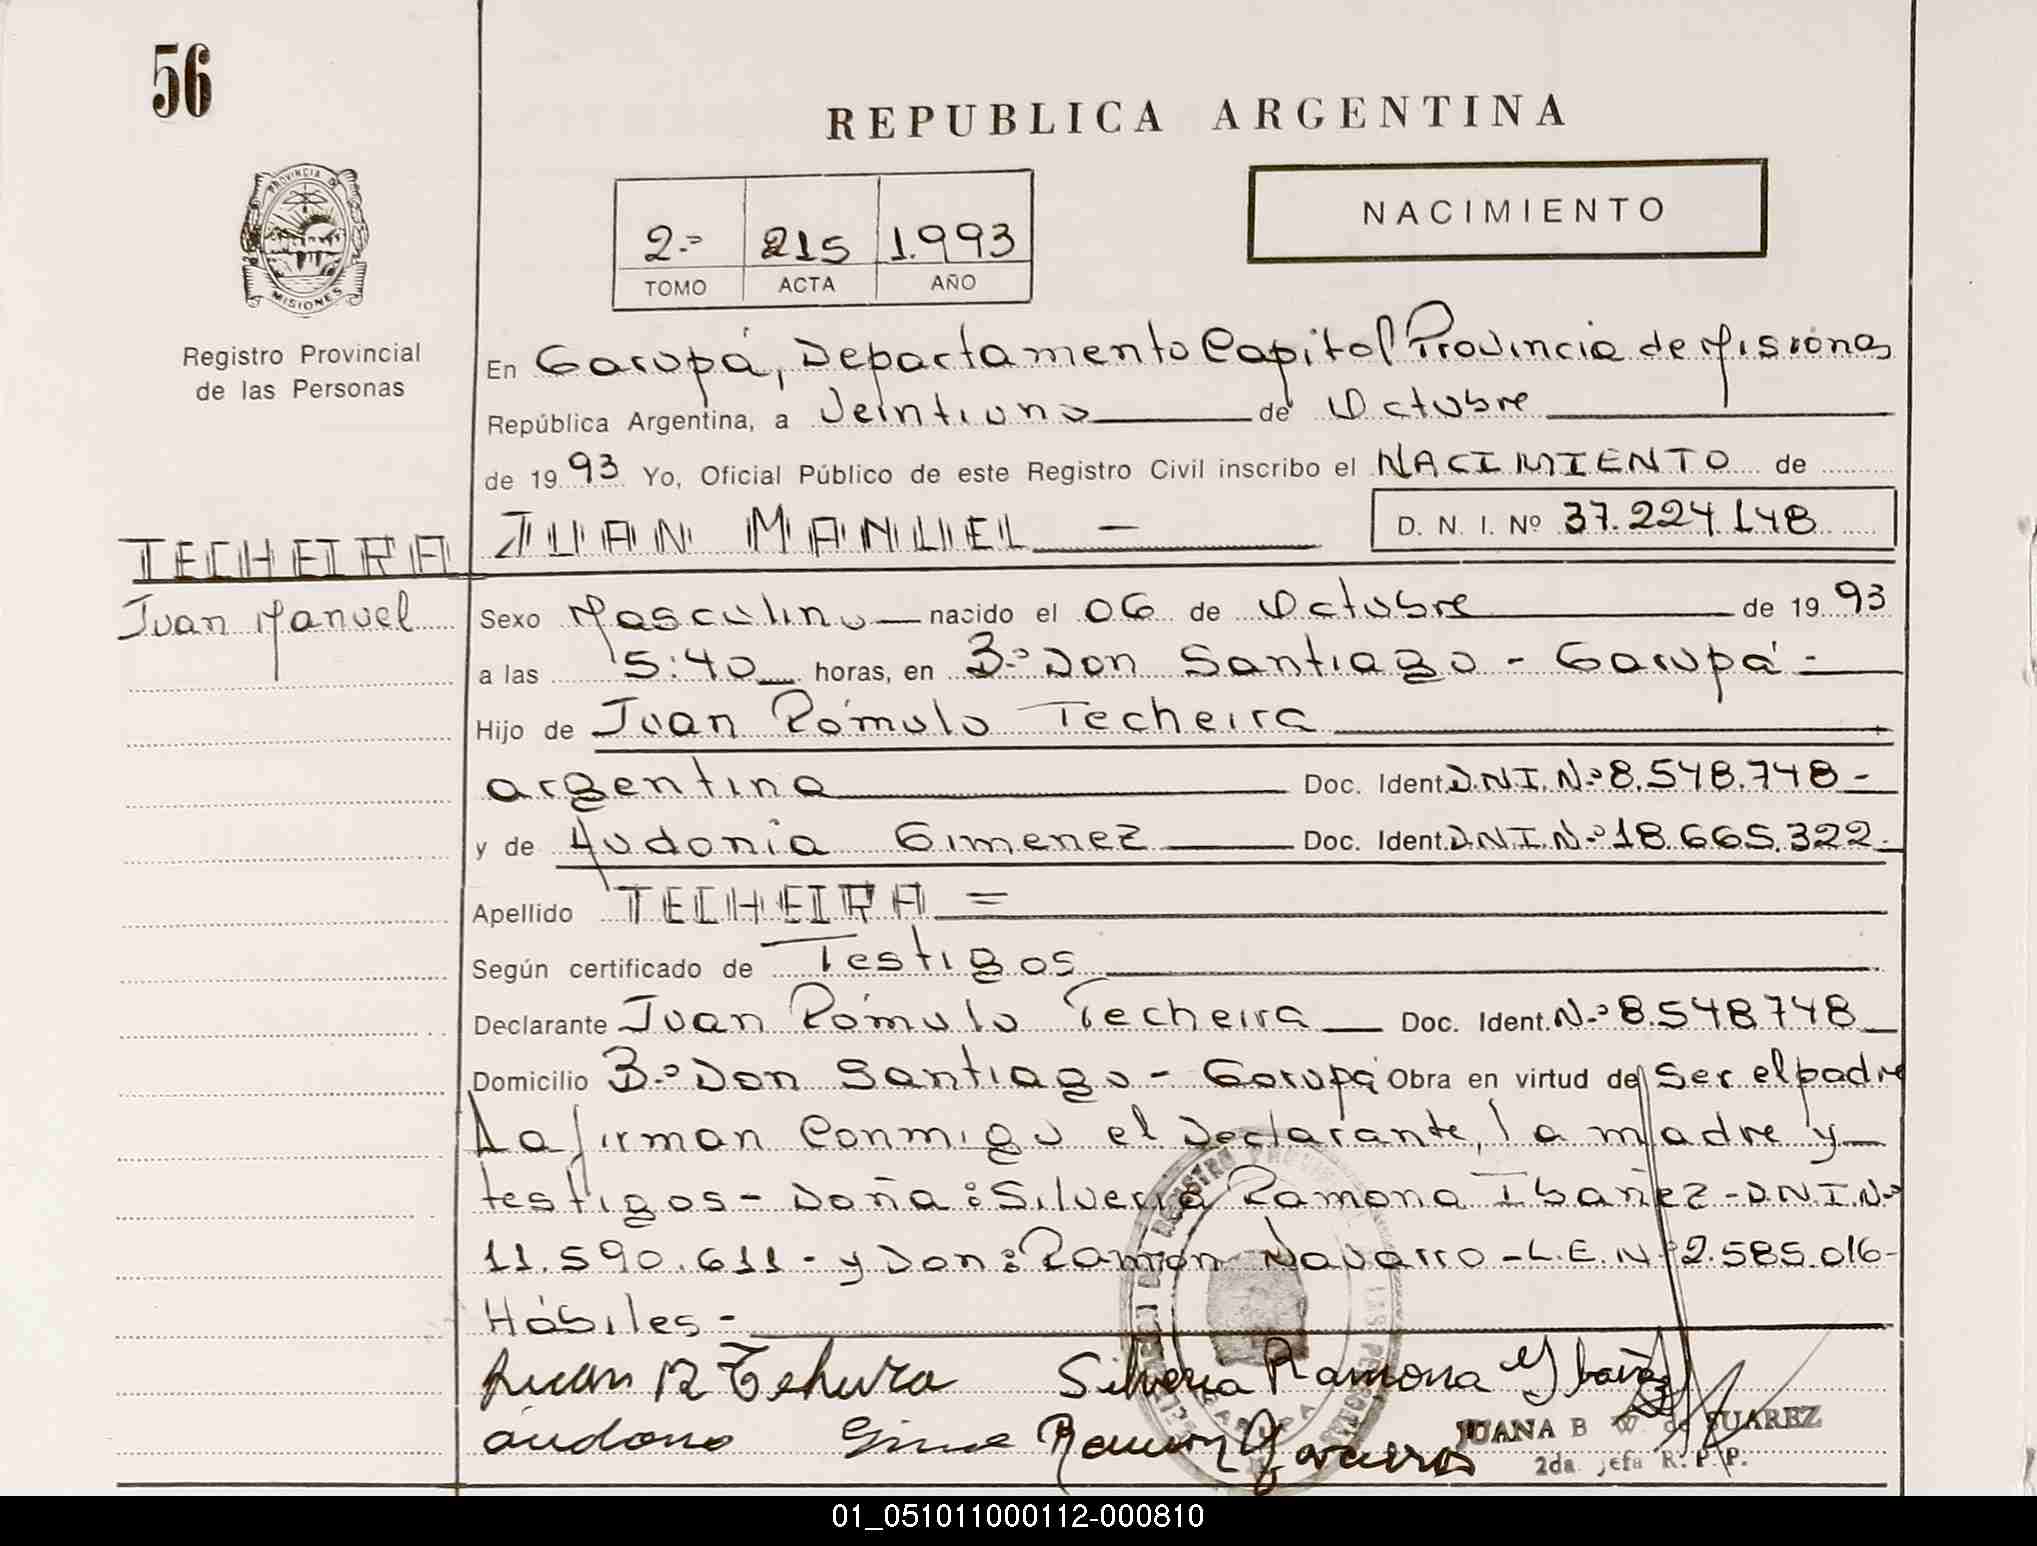 56
REPUBLICA ARGENTINA
PROVINCIA DE
MISIONES
NACIMIENTO
2.º 215 1.993
TOMO ACTA AÑO
Registro Provincial
de las Personas
En Garupá, Departamento Capital Provincia de Misiones
República Argentina, a Veintiuno de Octubre
de 1993 Yo, Oficial Público de este Registro Civil inscribo el NACIMIENTO de
TECHEIRA JUAN MANUEL — D. N. I. Nº 37.224.148
Juan Manuel
Sexo Masculino nacido el 06 de Octubre de 1993
a las 5:40 horas, en B.º Don Santiago - Garupá -
Hijo de Juan Rómulo Techeira
argentina Doc. Ident. D.N.I. N.º 8.548.748 -
y de Audonia Gimenez Doc. Ident. D.N.I. N.º 18.665.322.
Apellido TECHEIRA =
Según certificado de Testigos
Declarante Juan Rómulo Techeira Doc. Ident. N.º 8.548748
Domicilio B.º Don Santiago - Garupá Obra en virtud de Ser el padre
La firman Conmigo el Declarante, la madre y
testigos - Doña: Silveria Ramona Ibañez - D.N.I. N.º
11.590.611 - y Don: Ramón Navarro - L.E. N.º 2.585.016 -
Hábiles -
Juan R Silveria Ramona Ybañez
Ramon Navarro
JUANA B W. de SUAREZ
2da. jefa R. P. P.
01_051011000112-000810